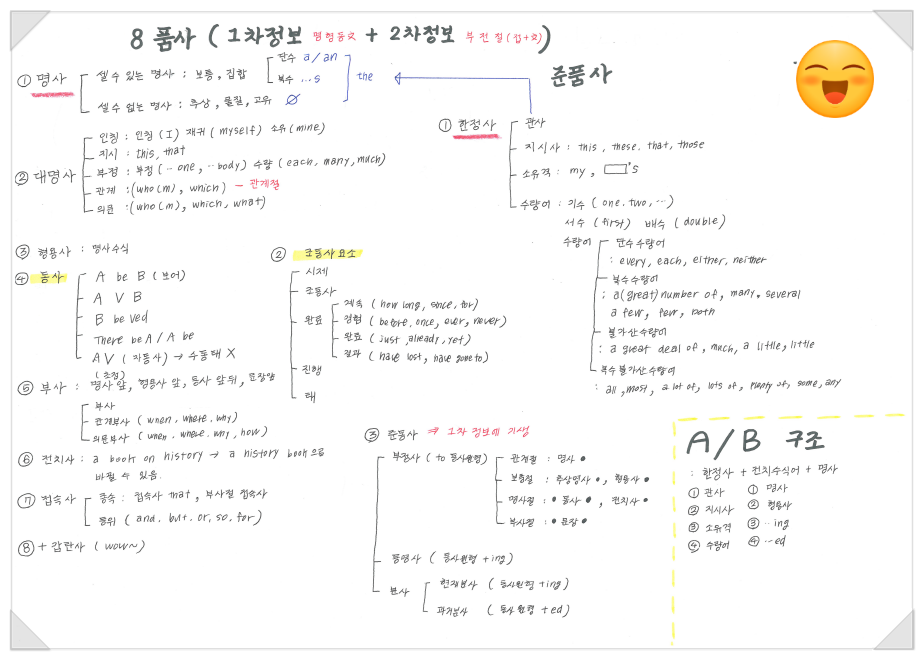 8 품사 ( 1차정보 명형동모 + 2차정보 부전형(접+모))
① 명사
셀 수 있는 명사 : 보통, 집합
단수 a/an
복수 ...s
the
셀 수 없는 명사 : 추상, 물질, 고유 ∅
② 대명사
인칭 : 인칭 (I) 재귀 (myself) 소유 (mine)
지시 : this, that
부정 : 부정 (‥one, ‥body) 수량 (each, many, much)
관계 : (who(m), which) - 관계절
의문 : (who(m), which, what)
③ 형용사 : 명사수식
④ 동사
A be B (보어)
A V B
B be Ved
There be A / A be
A V (자동사) → 수동태 X
⑤ 부사 : 명사 앞, 형용사 앞, 동사 앞뒤, 문장앞
(초점)
부사
관계부사 (when, where, why)
의문부사 (when, where, why, how)
⑥ 전치사 : a book on history → a history book으로
바뀔 수 있음.
⑦ 접속사
종속 : 접속사 that, 부사절 접속사
등위 (and, but, or, so, for)
⑧ + 감탄사 (wow~)
준품사
① 한정사
관사
지시사 : this, these, that, those
소유격 : my, □'s
수량어 : 기수 (one, two, ...)
서수 (first) 배수 (double)
수량어
단수수량어
: every, each, either, neither
복수수량어
: a(great) number of, many, several
a few, few, both
불가산수량어
: a great deal of, much, a little, little
복수불가산수량어
: all, most, a lot of, lots of, plenty of, some, any
② 조동사요소
시제
조동사
완료
계속 (how long, since, for)
경험 (before, once, ever, never)
완료 (just, already, yet)
결과 (have lost, have gone to)
진행
태
③ 준동사 ⇒ 1차 정보에 기생
부정사 (to 동사원형)
관계절 : 명사 ●
보충절 : 추상명사 ●, 형용사 ●
명사절 : ● 동사 ●, 전치사 ●
부사절 : ● 문장 ●
동명사 (동사원형 + ing)
분사
현재분사 (동사원형 + ing)
과거분사 (동사원형 + ed)
A/B 구조
: 한정사 + 전치수식어 + 명사
① 관사 ① 명사
② 지시사 ② 형용사
③ 소유격 ③ ‥ing
④ 수량어 ④ ‥ed